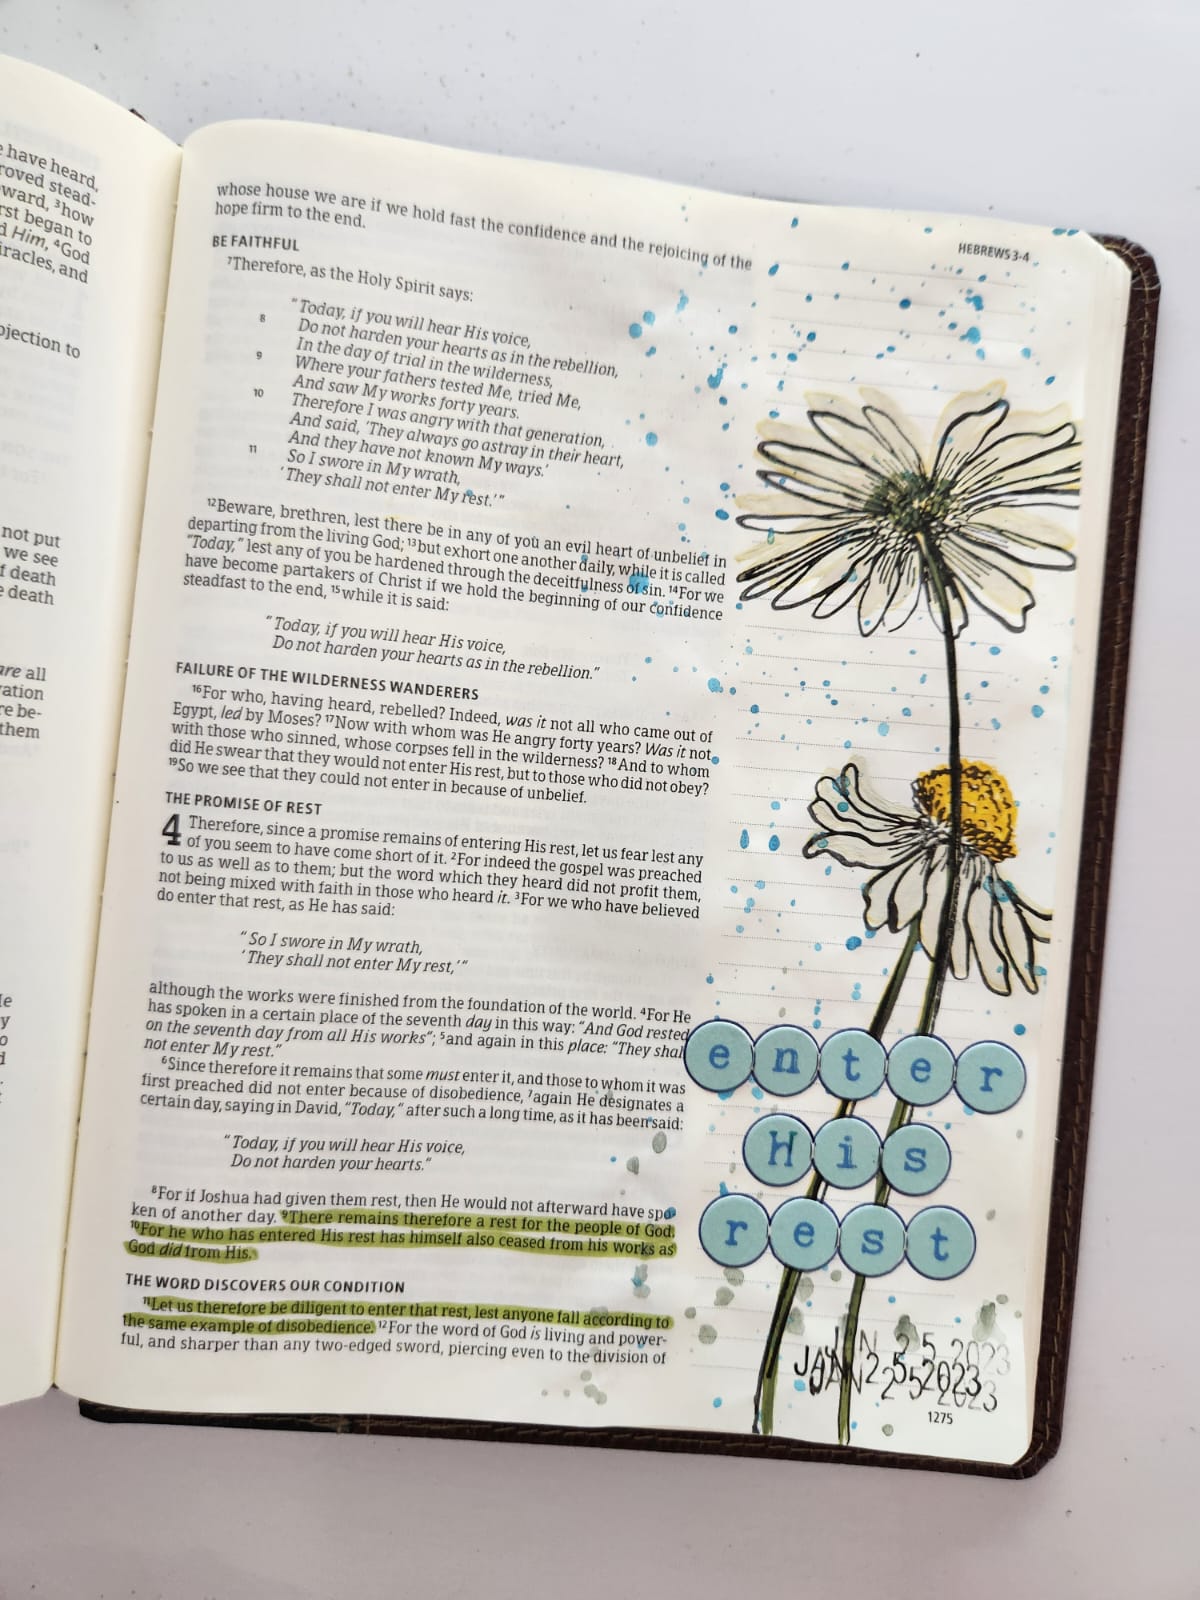 e have heard,
roved stead-
ward, ³how
rst began to
d Him, ⁴God
iracles, and
bjection to
not put
we see
f death
e death
are all
ration
re be-
them
whose house we are if we hold fast the confidence and the rejoicing of the
hope firm to the end.
HEBREWS 3-4
BE FAITHFUL
⁷Therefore, as the Holy Spirit says:
"Today, if you will hear His voice,
8 Do not harden your hearts as in the rebellion,
In the day of trial in the wilderness,
9 Where your fathers tested Me, tried Me,
And saw My works forty years.
10 Therefore I was angry with that generation,
And said, 'They always go astray in their heart,
And they have not known My ways.'
11 So I swore in My wrath,
'They shall not enter My rest.'"
¹²Beware, brethren, lest there be in any of you an evil heart of unbelief in
departing from the living God; ¹³but exhort one another daily, while it is called
"Today," lest any of you be hardened through the deceitfulness of sin. ¹⁴For we
have become partakers of Christ if we hold the beginning of our confidence
steadfast to the end, ¹⁵while it is said:
"Today, if you will hear His voice,
Do not harden your hearts as in the rebellion."
FAILURE OF THE WILDERNESS WANDERERS
¹⁶For who, having heard, rebelled? Indeed, was it not all who came out of
Egypt, led by Moses? ¹⁷Now with whom was He angry forty years? Was it not
with those who sinned, whose corpses fell in the wilderness? ¹⁸And to whom
did He swear that they would not enter His rest, but to those who did not obey?
¹⁹So we see that they could not enter in because of unbelief.
THE PROMISE OF REST
4 Therefore, since a promise remains of entering His rest, let us fear lest any
of you seem to have come short of it. ²For indeed the gospel was preached
to us as well as to them; but the word which they heard did not profit them,
not being mixed with faith in those who heard it. ³For we who have believed
do enter that rest, as He has said:
"So I swore in My wrath,
'They shall not enter My rest,'"
although the works were finished from the foundation of the world. ⁴For He
has spoken in a certain place of the seventh day in this way: "And God rested
on the seventh day from all His works"; ⁵and again in this place: "They shal
not enter My rest."
⁶Since therefore it remains that some must enter it, and those to whom it was
first preached did not enter because of disobedience, ⁷again He designates a
certain day, saying in David, "Today," after such a long time, as it has been said:
"Today, if you will hear His voice,
Do not harden your hearts."
⁸For if Joshua had given them rest, then He would not afterward have spo-
ken of another day. ⁹There remains therefore a rest for the people of God.
¹⁰For he who has entered His rest has himself also ceased from his works as
God did from His.
THE WORD DISCOVERS OUR CONDITION
¹¹Let us therefore be diligent to enter that rest, lest anyone fall according to
the same example of disobedience. ¹²For the word of God is living and power-
ful, and sharper than any two-edged sword, piercing even to the division of
enter
His
rest
JAN 25 2023
JAN 25 2023
JAN 25 2023
1275